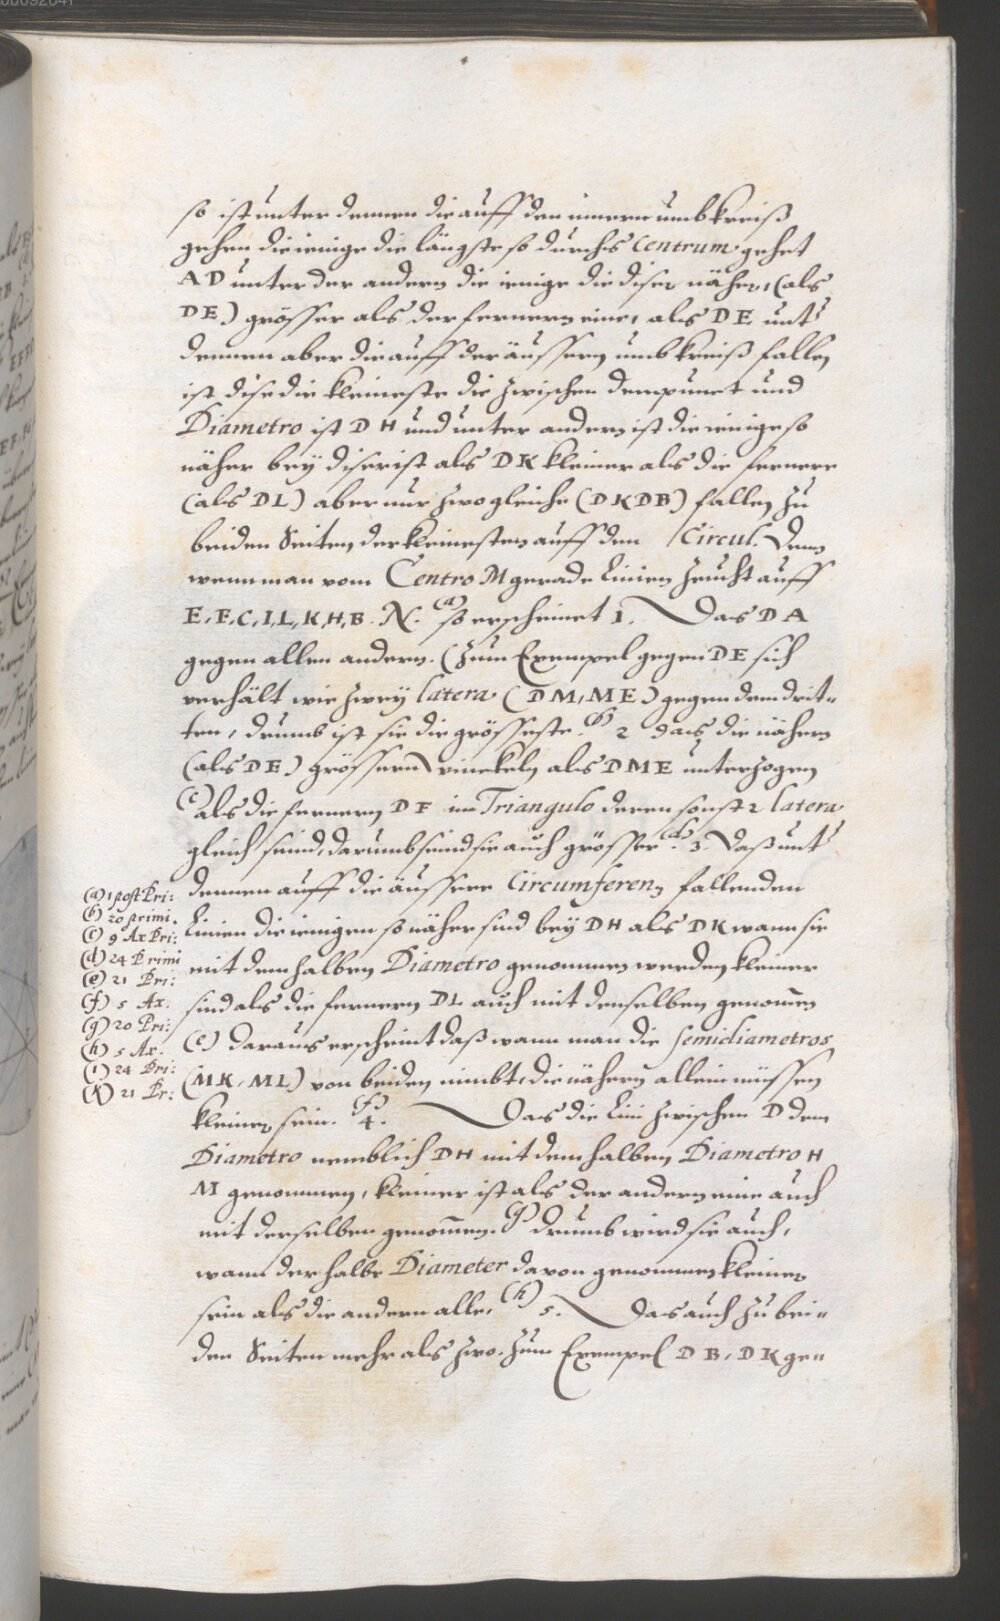 so ist unter dennen die auff den innern umbkreiß
gehen die ienige die längste so durchs Centrum gehet
AD unter der andern die ienige die diser näher, (als
DE) grösser als der fernern eine, als DE unt
dennen aber die auff der äussern umbkreiß fallen
ist dise die kleineste die zwischen dem punct und
Diametro ist DH und unter andern ist die ienige so
näher bey diser ist als DK kleiner als die fernere
(als DL) aber nur zwo gleiche (DKDB) fallen zu
beiden Seiten der kleinesten auff den Circul. Denn
wenn man vom Centro M gerade Linien zeucht auff
E, F, C, I, L, K, H, B. N. (a) so erscheinet 1. Das DA
gegen allen andern. (Zum Exempel gegen DE sich
verhält wie zwey latera (DM, ME) gegen dem drit-
ten, drumb ist sie die grösseste. (b) 2 das die nähern
(als DE) grössern winckeln als DME unterzogen
(c) als die fernern DF im Triangulo deren sonst 2 latera
gleich seind, darumb seind sie auch grösser. (d) 3. Daß unt
dennen auff die äussere Circumferenz fallenden
Linien die ienigen so näher sind bey DH als DK wann sie
mit dem halben Diametro genommen werden kleiner
sind als die fernern DL auch mit denselben genom̃en
(e) daraus erscheint daß wann man die semidiametros
(MK, ML) von beiden nimbt, die nähern allein müssen
kleiner sein. (f) 4. Das die Lini zwischen D dem
Diametro nemblich DH mit dem halben Diametro H
M genommen, kleiner ist als der andern eine auch
mit derselben genom̃en. (g) drumb wird sie auch,
wann der halbe Diameter davon genommen kleiner
sein als die andern alle. (h) 5. Das auch zu bei-
den Seiten mehr als zwo. Zum Exempel DB, DK ge-
(a) 1 post Pri:
(b) 20 primi.
(c) 9 Ax Pri:
(d) 24 Primi
(e) 21 Pri:
(f) 5 Ax.
(g) 20 Pri:
(h) 5 Ax.
(i) 24 Pri:
(k) 21 Pr: